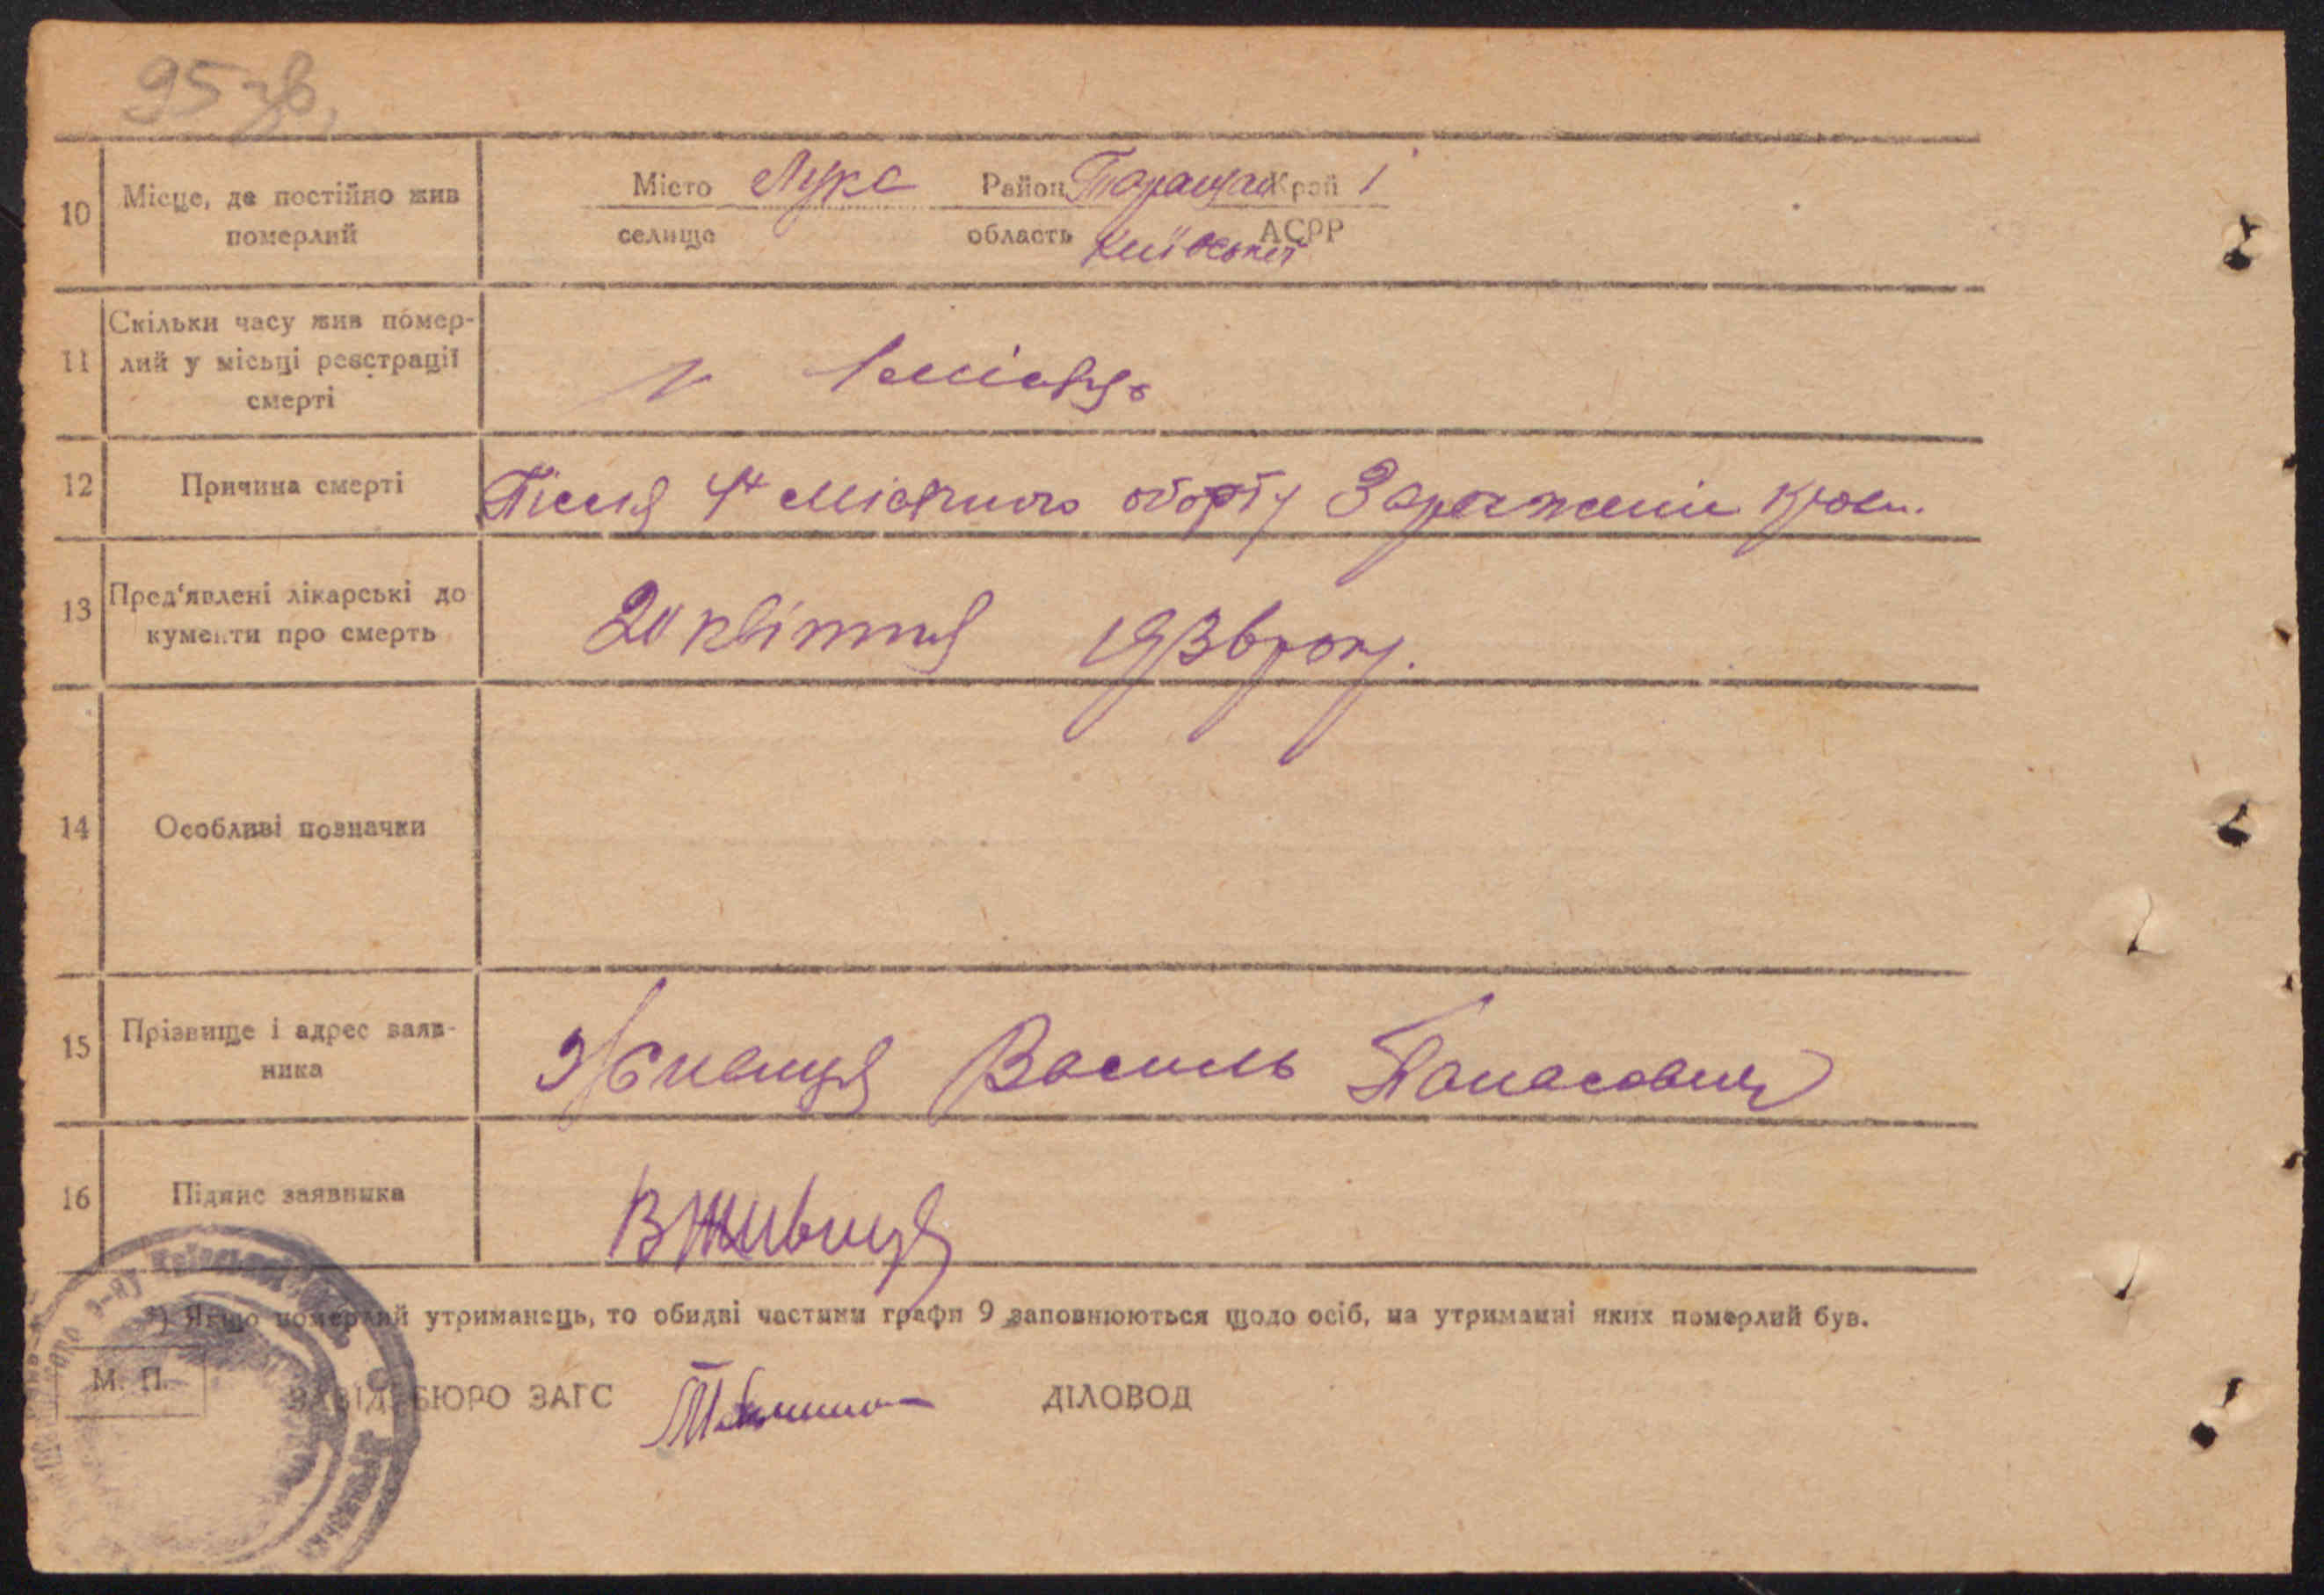 95 зв.
10 Місце, де постійно жив померлий
Місто Лука Район Таращан Край
селище область Київської АСРР
11 Скільки часу жив помер-
лий у місьці реєстрації
смерті
1 місяць
12 Причина смерті Після 4х місячного оборту Зараженіе крови.
13 Пред'явлені лікарські до
кументи про смерть
20 квітня 1936 року.
14 Особливі позначки
15 Прізвище і адрес заяв-
ника
Василь Панасович
16 Підпис заявника
*) Якщо померлий утриманець, то обидві частини графи 9 заповнюються щодо осіб, на утриманні яких померлий був.
М. П.
ЗАВІД. БЮРО ЗАГС ДІЛОВОД